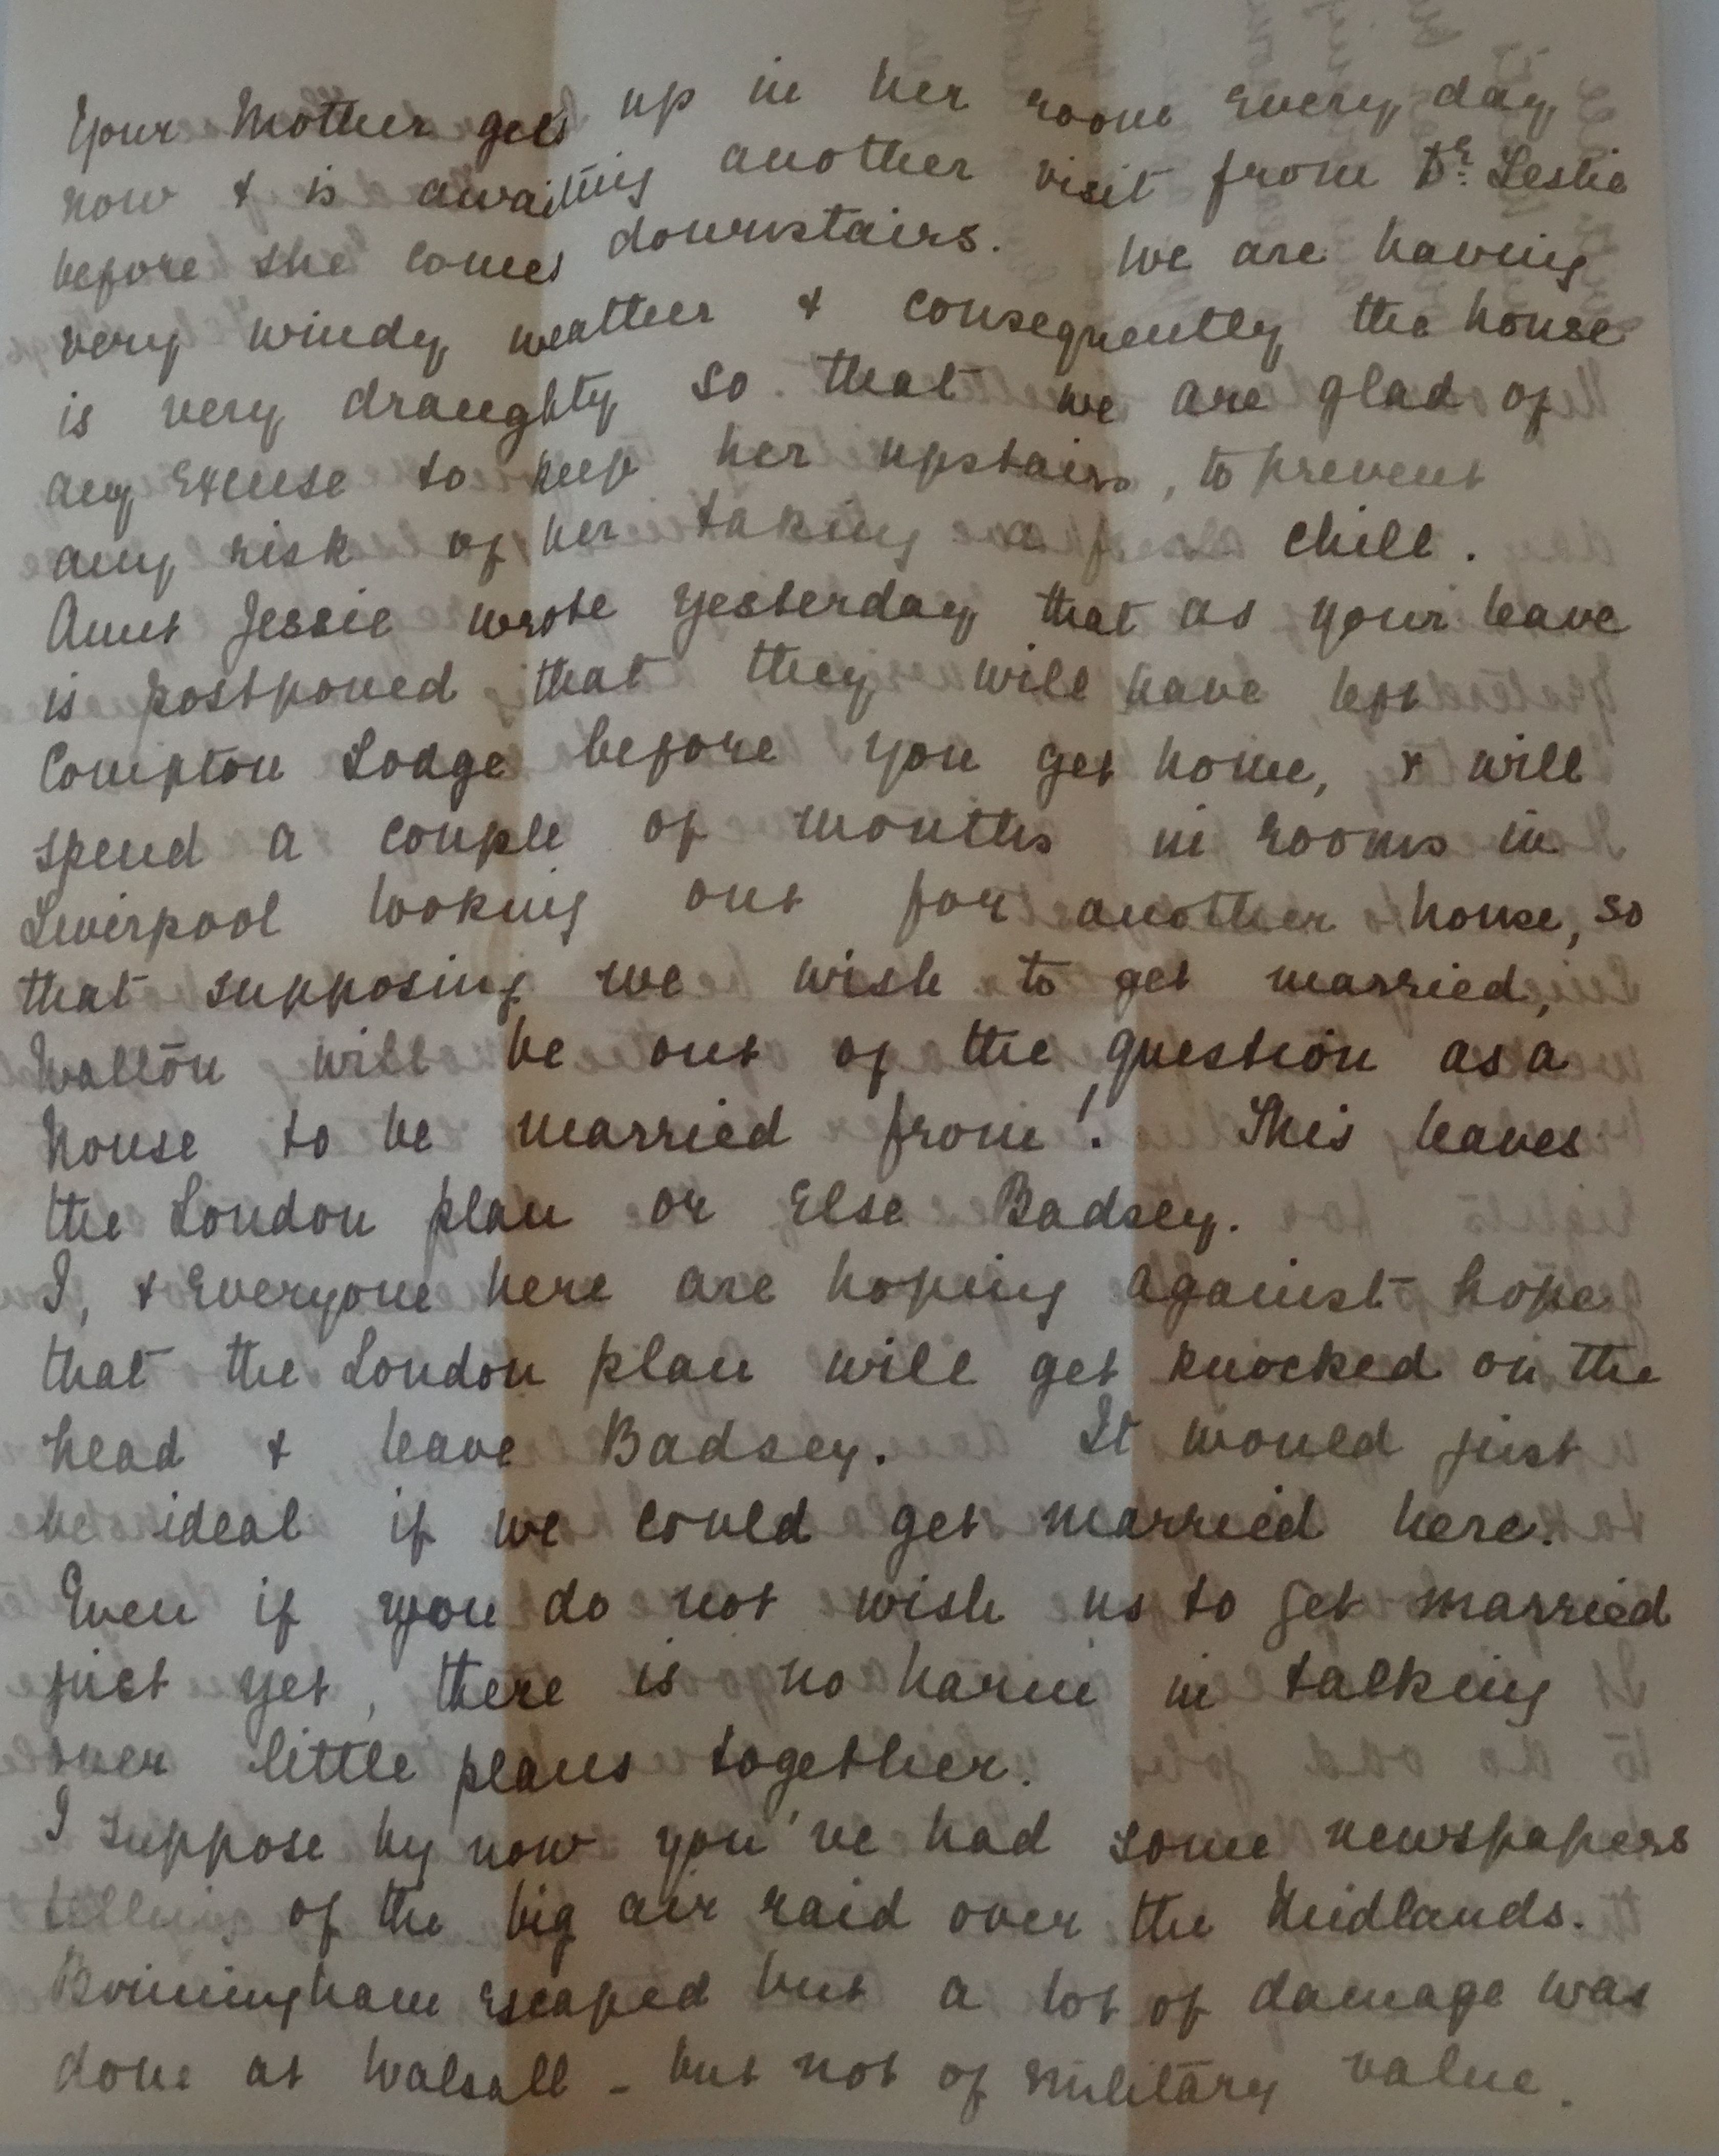 Your Mother gets up in her room every day
now & is awaiting another visit from Dr. Leslie
before she comes downstairs. We are having
very windy weather & consequently the house
is very draughty so that we are glad of
any excuse to keep her upstairs, to prevent
any risk of her taking a chill.
Aunt Jessie wrote yesterday that as your leave
is postponed that they will have left
Compton Lodge before you get home, & will
spend a couple of months in rooms in
Liverpool looking out for another house, so
that supposing we wish to get married,
Walton will be out of the question as a
house to be married from! This leaves
the London plan or Else Badsey.
I, & Everyone here are hoping against hope
that the London plan will get knocked on the
head & leave Badsey. It would just
be ideal if we could get married here.
Even if you do not wish us to get married
just yet, there is no harm in talking
over little plans together.
I suppose by now you've had some newspapers
telling of the big air raid over the Midlands.
Birmingham escaped but a lot of damage was
done at Walsall - but not of military value.